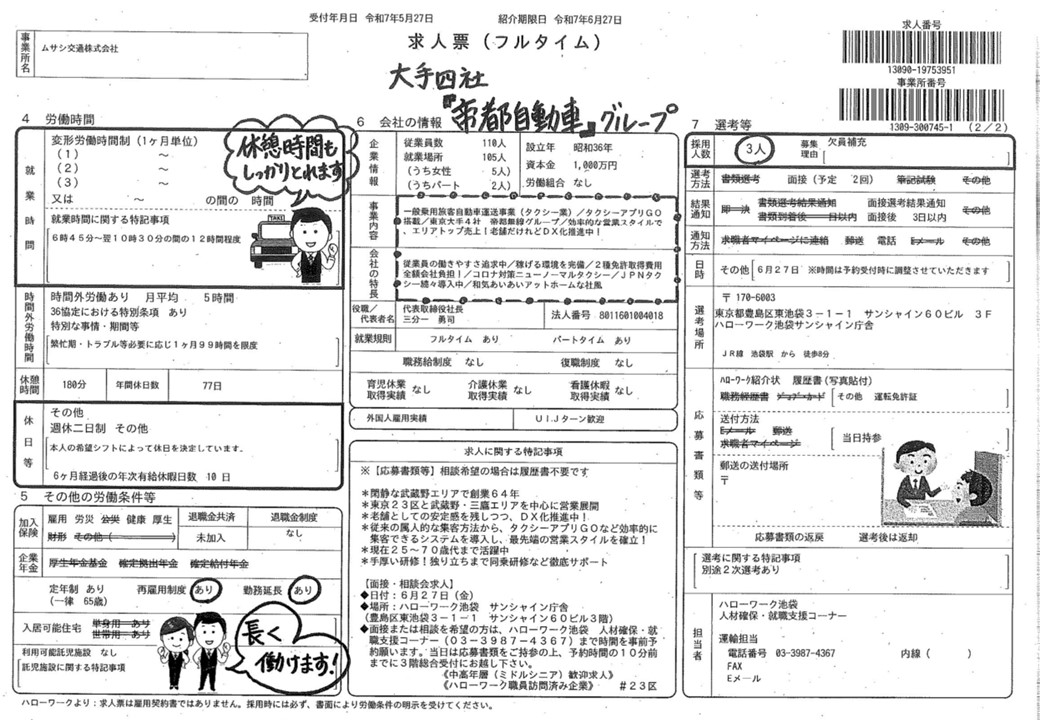 受付年月日 令和7年5月27日
紹介期限日 令和7年6月27日
求人票（フルタイム）
求人番号
13090-19753951
事業所番号
1309-300745-1 (2/2)
事業所名
ムサシ交通株式会社
大手四社
『帝都自動車』グループ
4 労働時間
就業時間
変形労働時間制（1ヶ月単位）
(1) ～
(2) ～
(3) ～
又は ～ の間の 時間
就業時間に関する特記事項
6時45分～翌10時30分の間の12時間程度
休憩時間も
しっかりとれます
TAXI
時間外労働時間
時間外労働あり 月平均 5時間
36協定における特別条項 あり
特別な事情・期間等
繁忙期・トラブル等必要に応じ1ヶ月99時間を限度
休憩時間
180分
年間休日数
77日
休日等
その他
週休二日制 その他
本人の希望シフトによって休日を決定しています。
6ヶ月経過後の年次有給休暇日数 10日
5 その他の労働条件等
加入保険
雇用 労災 公災 健康 厚生
財形 その他（ ）
退職金共済
未加入
退職金制度
なし
企業年金
厚生年金基金 確定拠出年金 確定給付年金
定年制 あり
（一律 65歳）
再雇用制度 あり
勤務延長 あり
入居可能住宅
単身用 あり
世帯用 あり
利用可能託児施設 なし
託児施設に関する特記事項
長く
働けます!
6 会社の情報
企業情報
従業員数 110人
就業場所 105人
（うち女性 5人）
（うちパート 2人）
設立年 昭和36年
資本金 1,000万円
労働組合 なし
事業内容
一般乗用旅客自動車運送事業（タクシー業）／タクシーアプリGO
搭載／東京大手4社 帝都無線グループ／効率的な営業スタイルで
、エリアトップ売上！老舗だけれどDX化推進中！
会社の特長
従業員の働きやすさ追求中／稼げる環境を完備／2種免許取得費用
全額会社負担！／コロナ対策ニューノーマルタクシー／JPNタク
シー続々導入中／和気あいあいアットホームな社風
役職／代表者名
代表取締役社長
三分一 勇司
法人番号 8011601004018
就業規則
フルタイム あり パートタイム あり
職務給制度 なし 復職制度 なし
育児休業取得実績 なし
介護休業取得実績 なし
看護休暇取得実績 なし
外国人雇用実績
UIJターン歓迎
求人に関する特記事項
※【応募書類等】相談希望の場合は履歴書不要です
＊閑静な武蔵野エリアで創業64年
＊東京23区と武蔵野・三鷹エリアを中心に営業展開
＊老舗としての安定感を残しつつ、DX化推進中！
＊従来の属人的な集客方法から、タクシーアプリGOなど効率的に
集客できるシステムを導入し、最先端の営業スタイルを確立！
＊現在25～70歳代まで活躍中
＊手厚い研修！独り立ちまで同乗研修など徹底サポート
【面接・相談会求人】
◆日付：6月27日（金）
◆場所：ハローワーク池袋 サンシャイン庁舎
（豊島区東池袋3－1－1 サンシャイン60ビル3階）
◆面接または相談を希望の方は、ハローワーク池袋 人材確保・就
職支援コーナー（03－3987－4367）まで時間を事前予
約願います。当日は応募書類をご持参の上、予約時間の10分前
までに3階総合受付にお越し下さい。
《中高年層（ミドルシニア）歓迎求人》
《ハローワーク職員訪問済み企業》 ＃23区
7 選考等
採用人数
3人
募集理由
欠員補充
選考方法
書類選考 面接（予定 2回） 筆記試験 その他
結果通知
即決 書類選考結果通知 面接選考結果通知
書類到着後 日以内 面接後 3日以内 その他
通知方法
求職者マイページに連絡 郵送 電話 Eメール その他
日時
その他 6月27日 ※時間は予約受付時に調整させていただきます
選考場所
〒170-6003
東京都豊島区東池袋3－1－1 サンシャイン60ビル 3F
ハローワーク池袋サンシャイン庁舎
JR線 池袋駅 から 徒歩8分
応募書類等
ﾊﾛｰﾜｰｸ紹介状 履歴書（写真貼付）
職務経歴書 ｼﾞｮﾌﾞ･ｶｰﾄﾞ その他 運転免許証
送付方法
Eメール 郵送
求職者マイページ
当日持参
郵送の送付場所
〒
応募書類の返戻 選考後は返却
選考に関する特記事項
別途2次選考あり
担当者
ハローワーク池袋
人材確保・就職支援コーナー
運輸担当
電話番号 03-3987-4367 内線（ ）
FAX
Eメール
ハローワークより：求人票は雇用契約書ではありません。採用時には必ず、書面により労働条件の明示を受けてください。